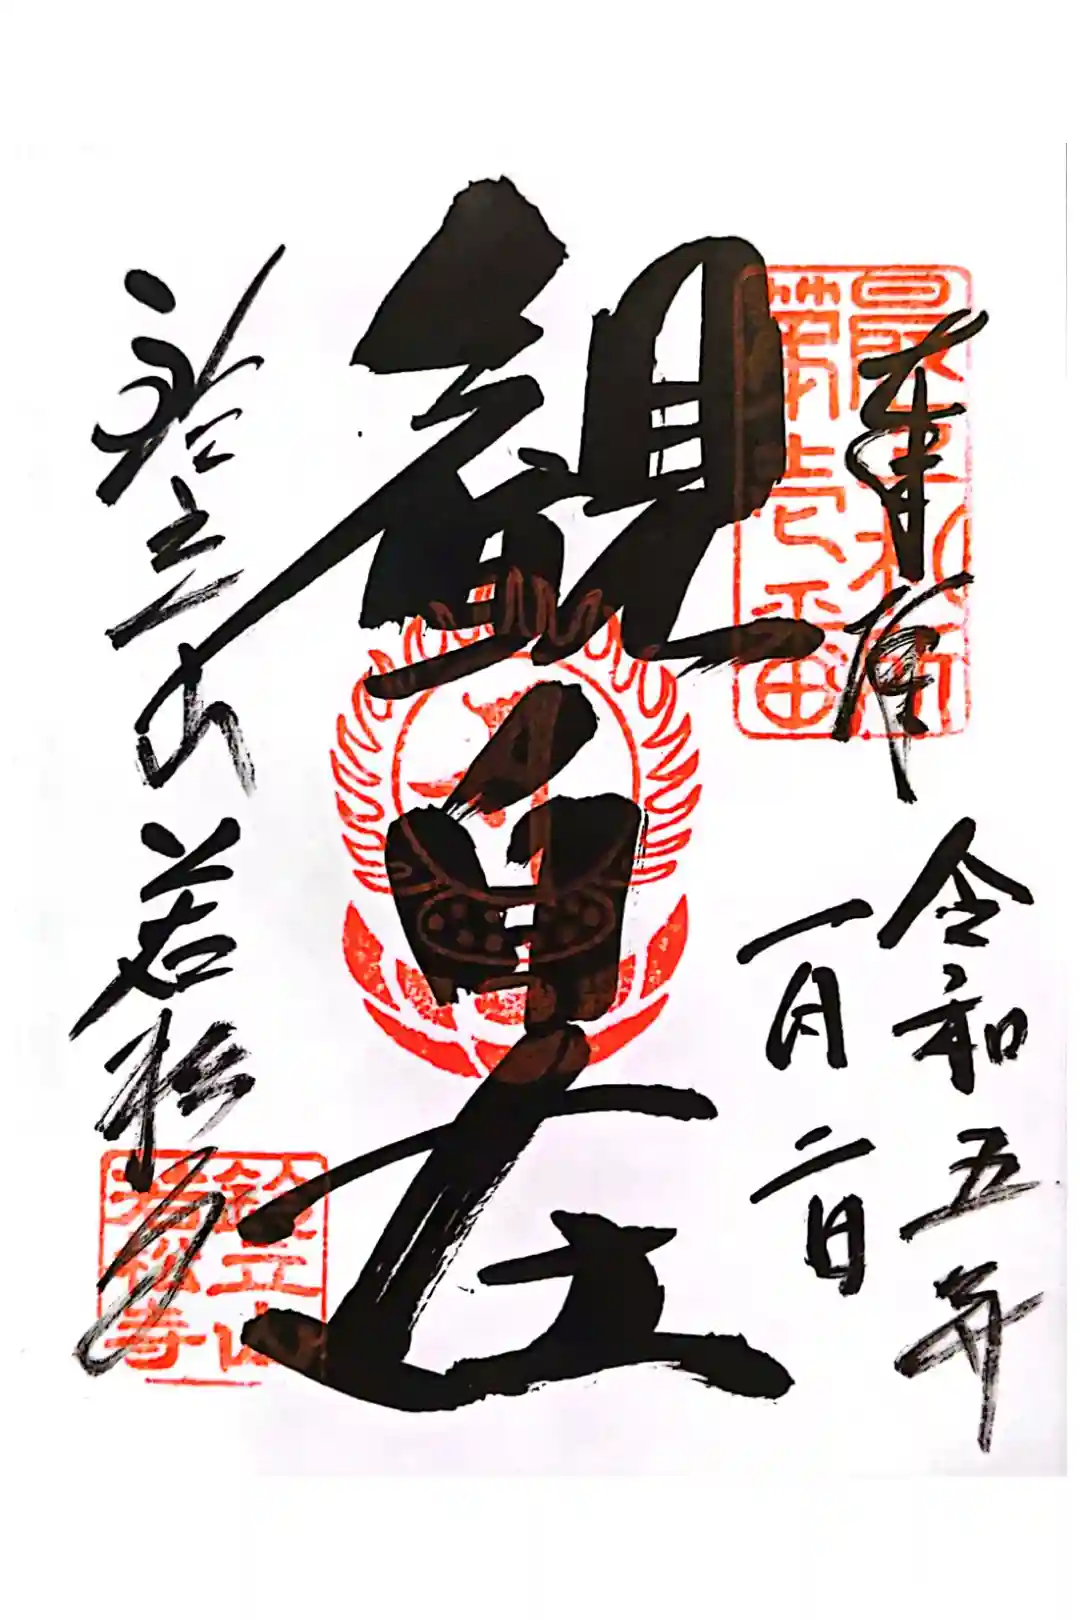 奉拝
令和五年
一月二日
最上札所
第壱番
観自在
鈴立山
若松寺
鈴立山
若松寺